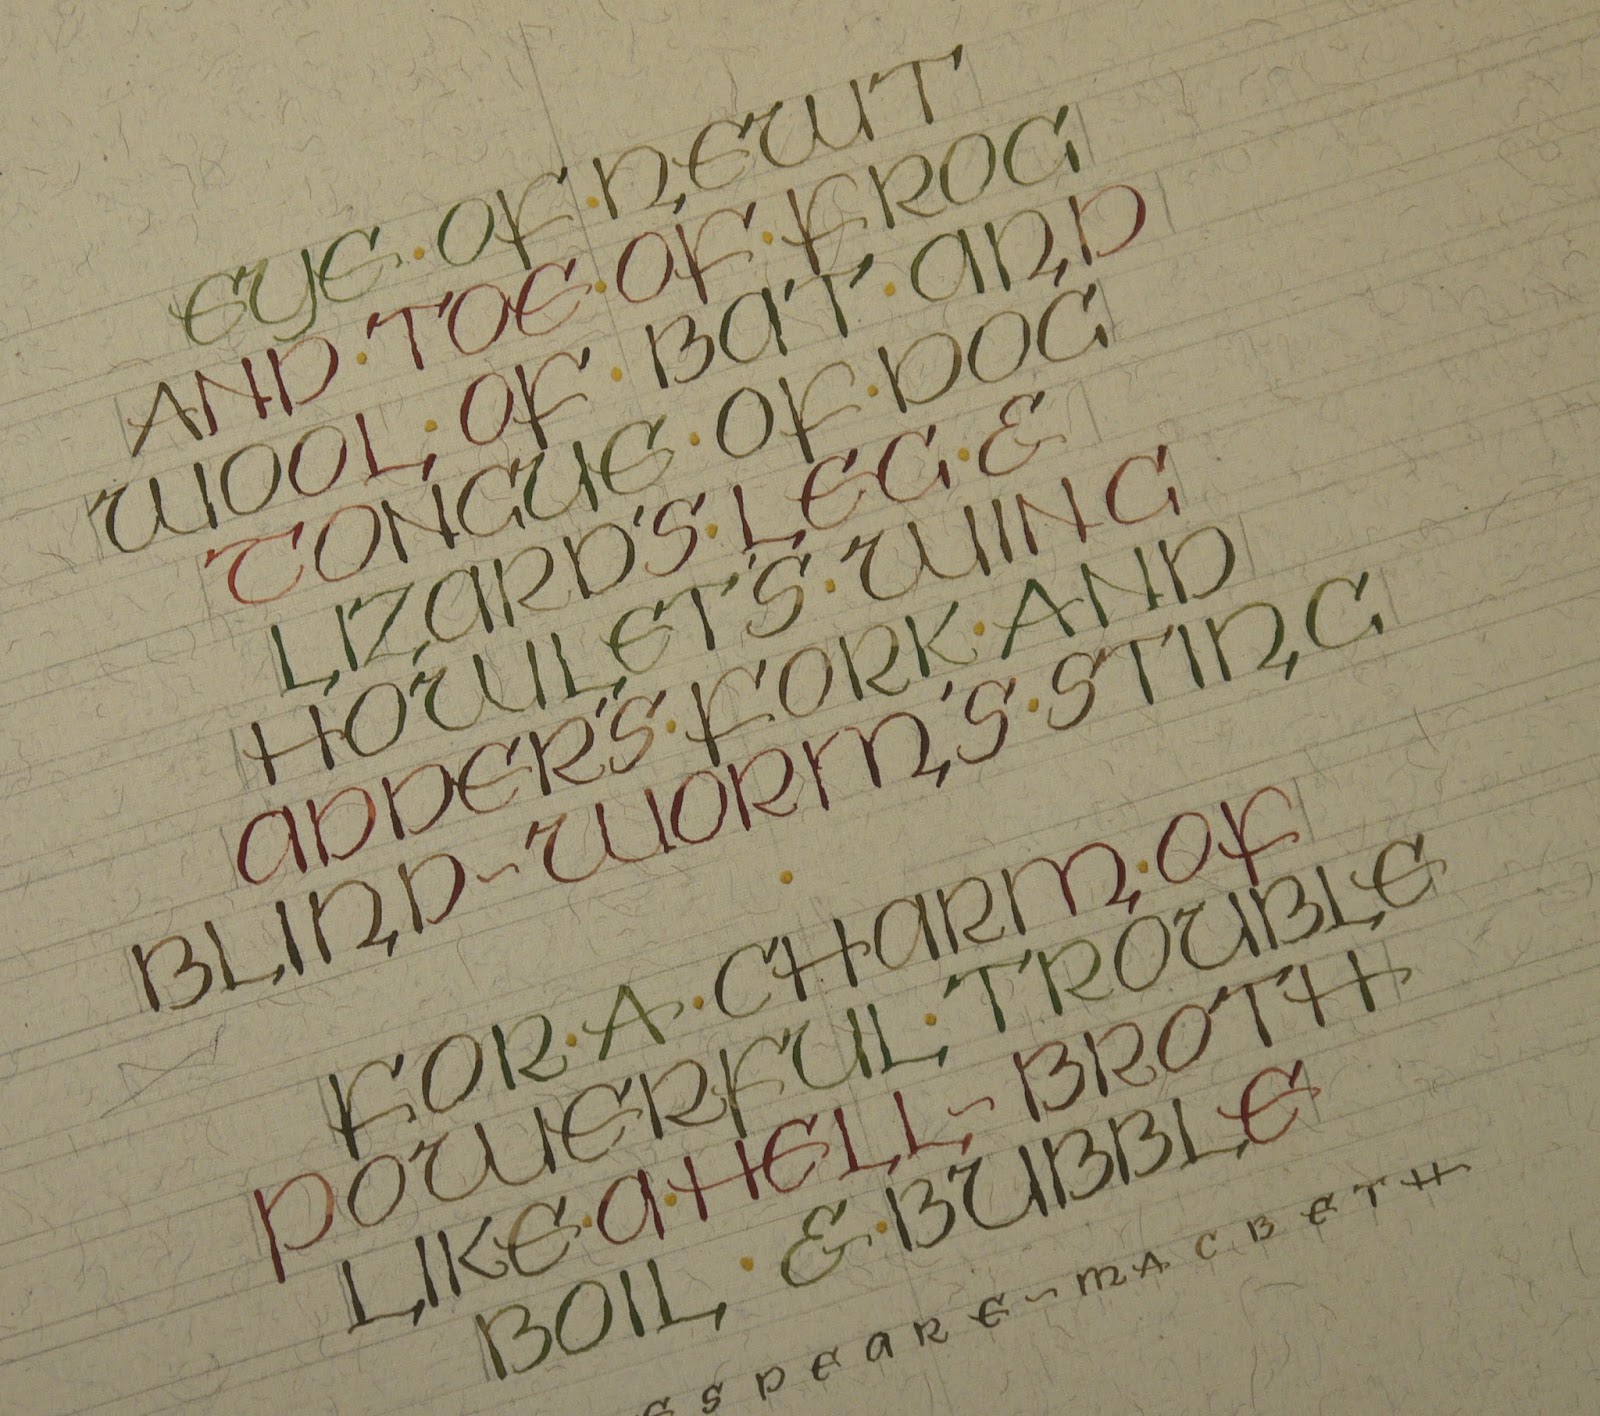 EYE·OF·NEWT
AND·TOE·OF·FROG
WOOL·OF·BAT·AND
TONGUE·OF·DOG
LIZARD'S·LEG·&
HOWLET'S·WING
ADDER'S·FORK·AND
BLIND~WORM'S·STING
·
FOR·A·CHARM·OF
POWERFUL·TROUBLE
LIKE·A·HELL~BROTH
BOIL·&·BUBBLE
ESPEARE~MACBETH